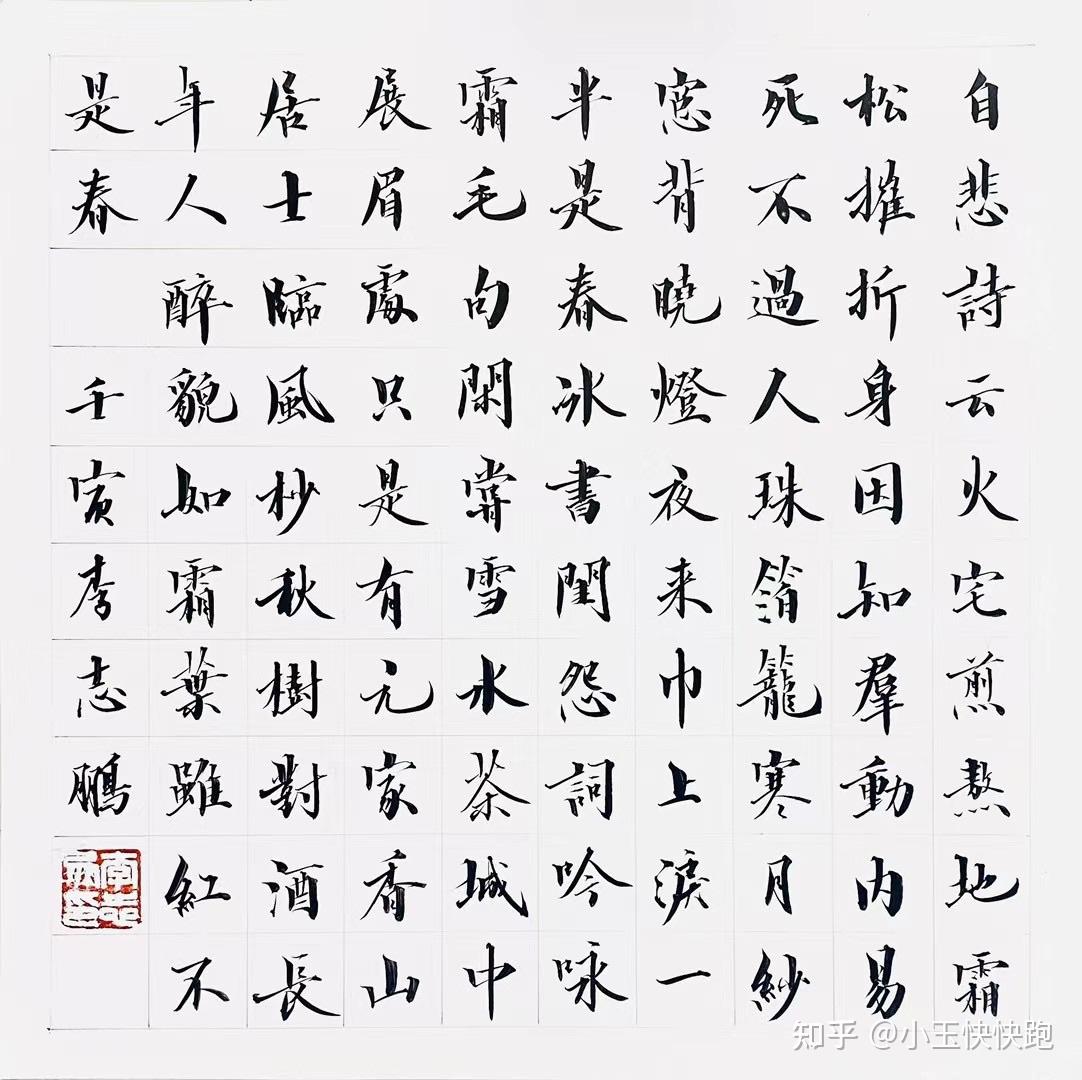 自悲詩云火宅煎熬地霜
松摧折身因知羣動内易
死不過人珠箔籠寒月紗
窓背曉燈夜来巾上淚一
半是春冰書閨怨詞吟咏
霜毛句閑嘗雪水茶城中
展眉處只是有元家香山
居士臨風杪秋樹對酒長
年人醉貌如霜葉雖紅不
是春 壬寅李志鵬
知乎 @小玉快快跑